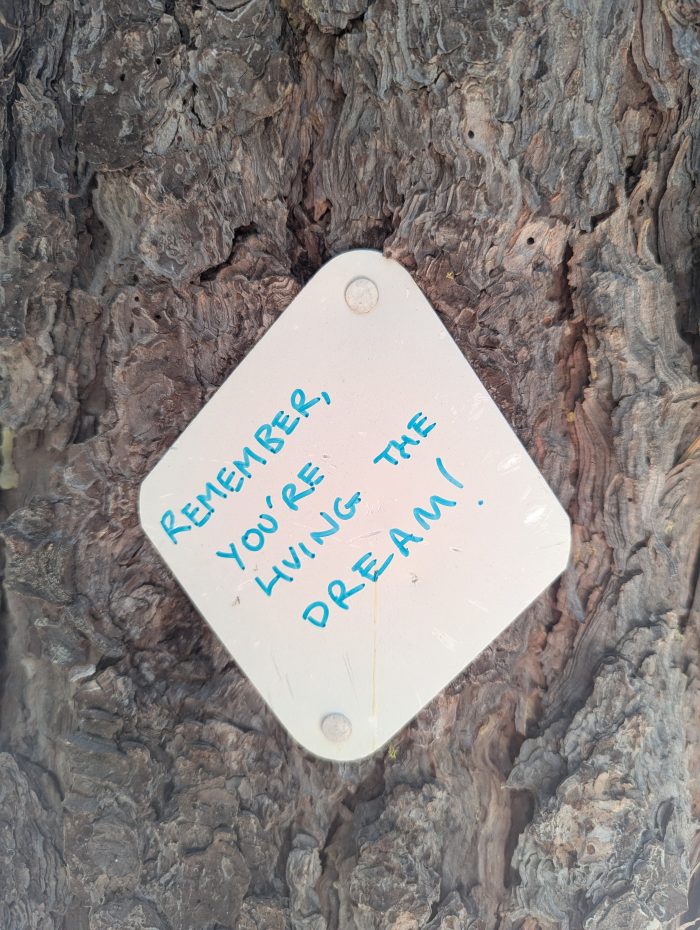 REMEMBER,
YOU'RE
LIVING THE
DREAM!